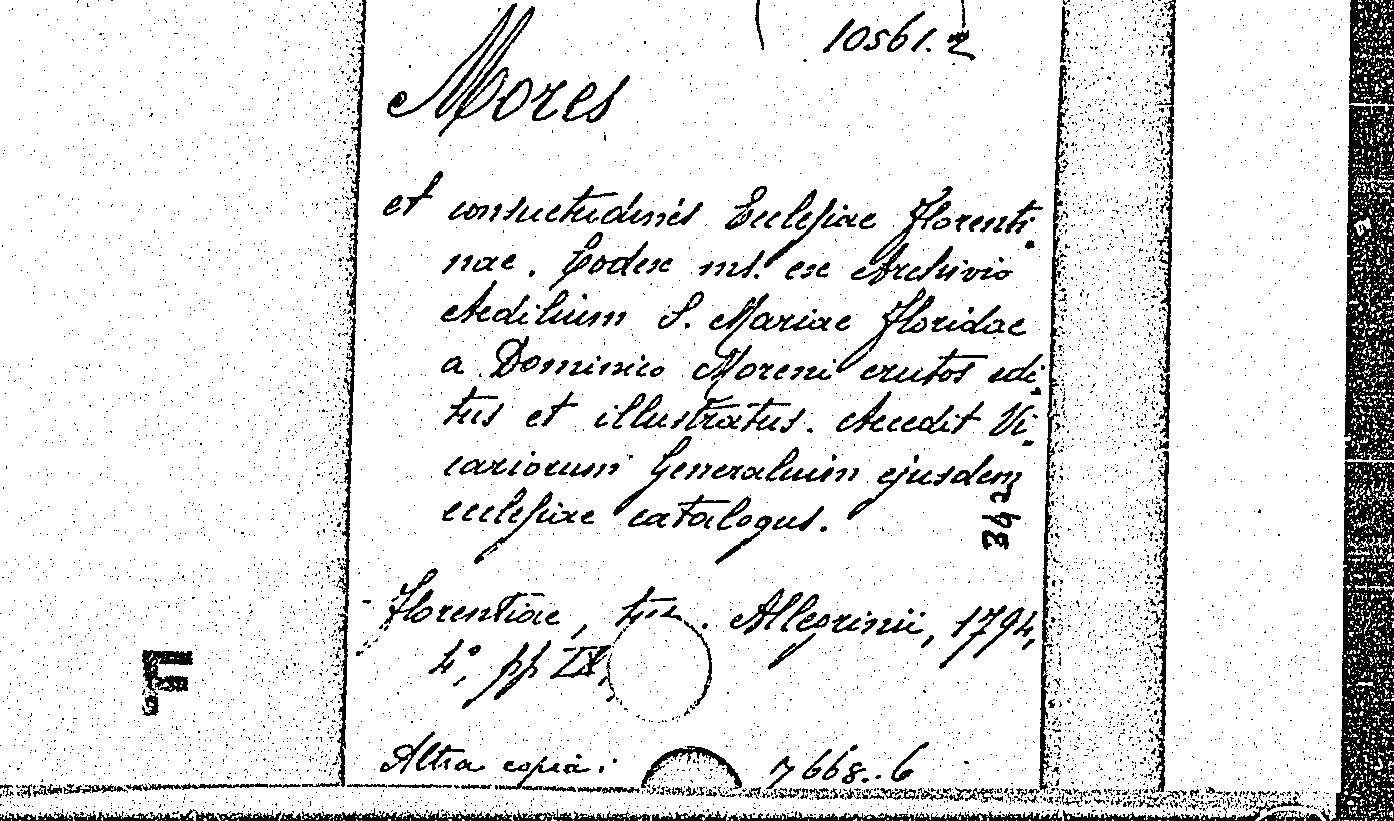 10561.2
Mores
et consuetudines Ecclesiae Florenti-
nae. Codex ms. ex Archivio
Aedilium S. Mariae Floridae
a Dominico Moreni erutos edi-
tus et illustratus. Accedit Vi-
cariorum Generalium ejusdem
ecclesiae catalogus.
342
Florentiae, Allegrinii, 1794,
4°, pp IX,
F
Altra copia: 7668..6